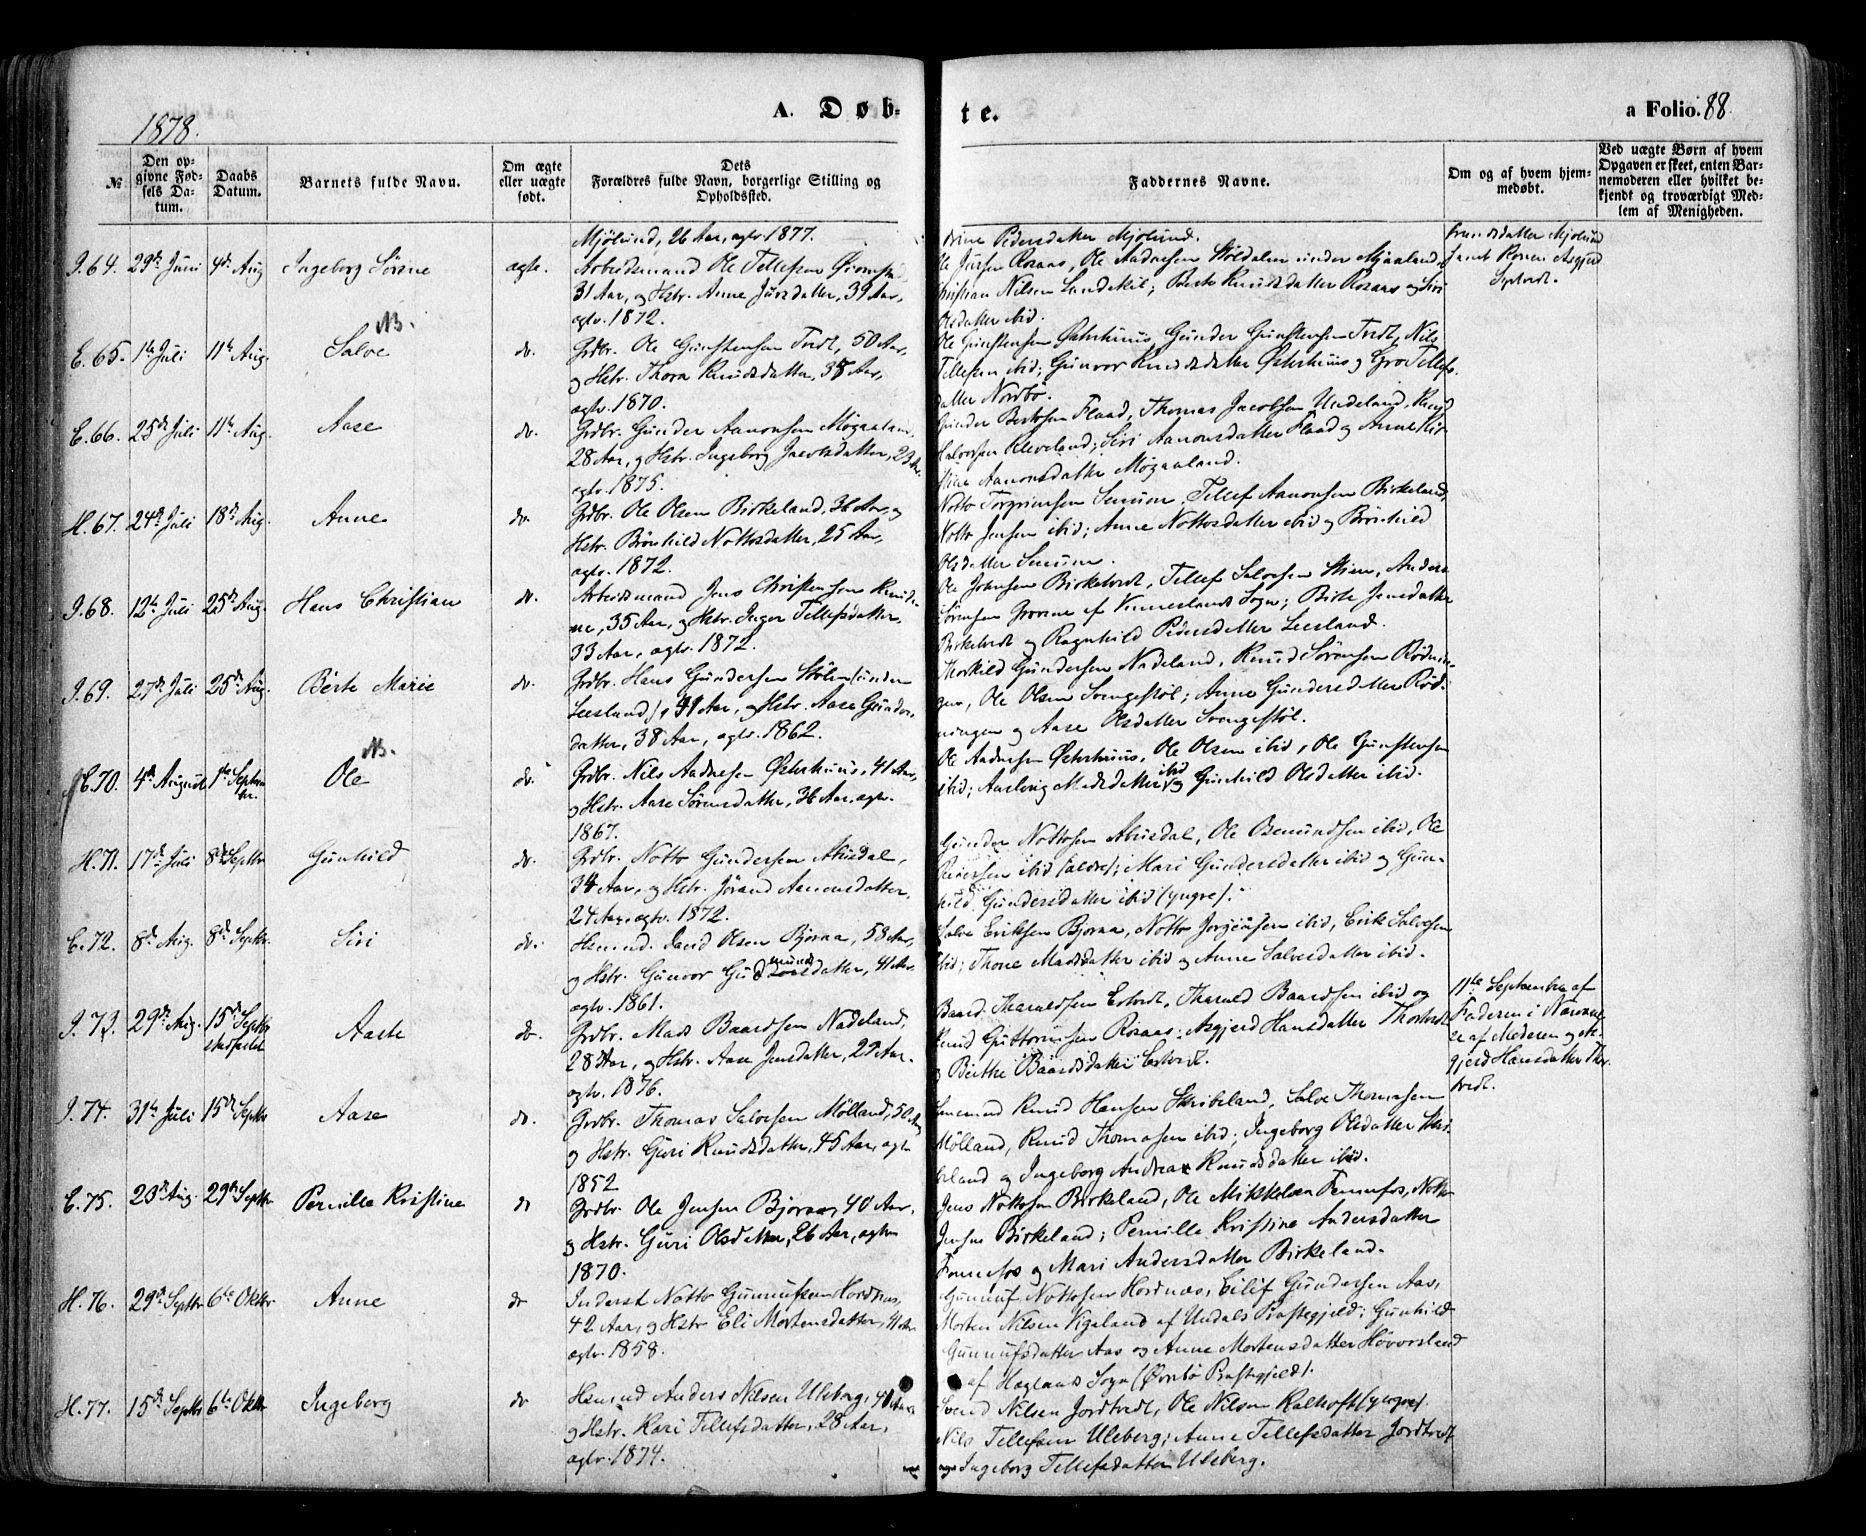 1878.
A. Døb-
te.
a Folio. 88
№
Den op-
givne Fød-
sels Da-
tum.
Daabs
Datum.
Barnets fulde Navn.
Om ægte
eller uægte
født.
Dets
Forældres fulde Navn, borgerlige Stilling og
Opholdssted.
Faddernes Navne.
Om og af hvem hjem-
medøbt.
Ved uægte Børn af hvem
Opgaven er skeet, enten Bar-
nemoderen eller hvilket be-
kjendt og troværdigt Med-
lem af Menigheden.
Mjølund, 26 Aar, agtv. 1877.
Pedersdatter Mjølund.
I. 64. 29de Juni 4de Aug Ingeborg Sørine ægte.
Arbeidsmand Ole Tellefsen
31 Aar, og Hstr. Anne Jursdatter, 39 Aar,
agtv. 1872.
Rosaas, Ole Aadnesen Støldalen under Mjaaland,
Christian Nilsen Landskil; Berte Knudsdatter Rosaas og Siri
Olsdatter ibid.
E. 65. 1ste Juli 11te Aug. Salve NB. do.
Grdbr. Ole Gunstensen Tvedt, 50 Aar,
og Hstr. Thora Knudsdatter, 38 Aar,
agtv. 1870.
Ole Gunstensen Østerhuus, Gunder Gunstensen Tvedt, Nils
Tellefsen ibid; Gunvor Knudsdatter Østerhuus og Gro Tellefs-
datter Nordbø.
E. 66. 25de Juli 11te Aug. Aase do.
Grdbr. Gunder Aanonsen Møgaaland,
28 Aar, og Hstr. Ingeborg Jacobsdatter, 23 Aar,
agtv. 1875.
Gunder Bertosen Flaad, Thomas Jacobsen Undeland, Knud
Salvesen Kleveland; Siri Aanonsdatter Flaad og Anne Kir-
stine Aanonsdatter Møgaaland.
H. 67. 24de Juli 18de Aug. Anne do.
Grdbr. Ole Olsen Birkeland, 36 Aar, og
Hstr. Brønhild Nottosdatter, 25 Aar,
agtv. 1872.
Notto Torgrimsen Senum, Tellef Aanonsen Birkeland,
Notto Jensen ibid; Anne Nottosdatter ibid og Brønhild
Olsdatter Senum.
I. 68. 12te Juli 25de Aug. Hans Christian do.
Arbeidsmand Jens Christensen
35 Aar, og Hstr. Inger Tellefsdatter,
33 Aar, agtv. 1872.
Ole Johnsen Birketvedt, Tellef Salvesen Stien, Anders
Sørensen Grovene af Vennesland Sogn; Birte Jensdatter
Birketvedt og Ragnhild Pedersdatter Leesland.
I. 69. 27de Juli 25de Aug. Berte Marie do.
Grdbr. Hans Gundersen Støleen (under
Leesland), 41 Aar, og Hstr. Aase Gunders-
datter, 38 Aar, agtv. 1862.
Thorkild Gundersen Nadeland, Knud Sørensen Rødnin-
gen, Ole Olsen Svengestøl; Anne Gundersdatter Rød-
ningen og Aase Olsdatter Svengestøl.
E. 70. 4de August 1ste Septem-
ber. Ole NB. do.
Grdbr. Nils Aadnesen Østerhuus, 41 Aar,
og Hstr. Aase Sørensdatter, 36 Aar, agtv.
1867.
Ole Aadnesen Østerhuus, Ole Olsen ibid, Ole Gunstensen
ibid; Aaslaug Madsdatter ibid og Gunhild Olsdatter ibid.
H. 71. 17de Juli 8de Septbr Gunhild do.
Grdbr. Notto Gundersen Abusdal,
34 Aar, og Hstr. Jørand Aanonsdatter,
24 Aar, agtv. 1872.
Gunder Nottosen Abusdal, Ole Osmundsen ibid, Ole
Pedersen ibid (ældre); Mari Gundersdatter ibid og Gun-
hild Gundersdatter ibid (yngre).
E. 72. 8de Aug. 8de Septbr. Siri do.
Husmd. David Olsen Bjoraa, 58 Aar,
og Hstr. Gunvor Gudmundsdatter, 41 Aar,
agtv. 1861.
Salve Eriksen Bjoraa, Notto Jørgensen ibid, Erik Salvesen
ibid; Thone Madsdatter ibid og Anne Salvesdatter ibid.
I. 73. 29de Aug. 15de Septbr
stadfæstet Aaste do.
Grdbr. Mads Baardsen Nadeland,
28 Aar, og Hstr. Aase Jensdatter, 27 Aar.
agtv. 1876.
Baard Tharaldsen Estvedt, Tharald Baardsen ibid og
Knud Guttormsen Rosaas; Asgjerd Hansdatter
og Beithe Baardsdatter Estvedt.
11te September af
Faderen i Nærvæ-
relse af Moderen og As-
gjerd Hansdatter
I. 74. 31te Juli 15de Septbr Aase do.
Grdbr. Thomas Salvesen Mølland, 50 Aar,
og Hstr. Guri Knudsdatter, 45 Aar, agtv
1852
Lensmand Knud Hansen Skribeland, Salve Thomasen
Mølland, Knud Thomasen ibid; Ingeborg Olsdatter Skri-
beland og Ingeborg Andrea Knudsdatter ibid.
E. 75. 23de Aug. 29de Septbr Pernille Kristine do
Grdbr. Ole Jensen Bjoraa, 40 Aar,
og Hstr. Guri Olsdatter, 26 Aar, agtv
1870.
Jens Nottosen Birkeland, Ole Mikkelsen Fennefos, Notto
Jensen Birkeland; Pernille Kristine Andersdatter
Fennefos og Mari Andersdatter Birkeland.
H. 76. 29de Septbr 6te Oktbr Anne do
Inderst Notto Gunnufsen Hordnæs,
42 Aar, og Hstr Eli Mortensdatter, 41 Aar
agtv. 1858.
Gunnuf Nottosen Hordnæs, Eilif Gundersen Aas,
Morten Nilsen Vigeland af Undals Præstegjeld; Gunhild
Gunnufsdatter Aas og Anne Mortensdatter Høversland
af Hægelands Sogn (Øvrebø Præstegjeld).
H. 77. 15de Septbr 6te Oktbr Ingeborg do
Husmd Anders Nilsen Uleberg, 41 Aar
og Hstr. Kari Tellefsdatter, 28 Aar,
agtv. 1874.
Svend Nilsen Jordtvedt, Ole Nilsen Kalhoft (yngre).
Nils Tellefsen Uleberg; Anne Tellefsdatter Jordtvedt
og Ingeborg Tellefsdatter Uleberg.